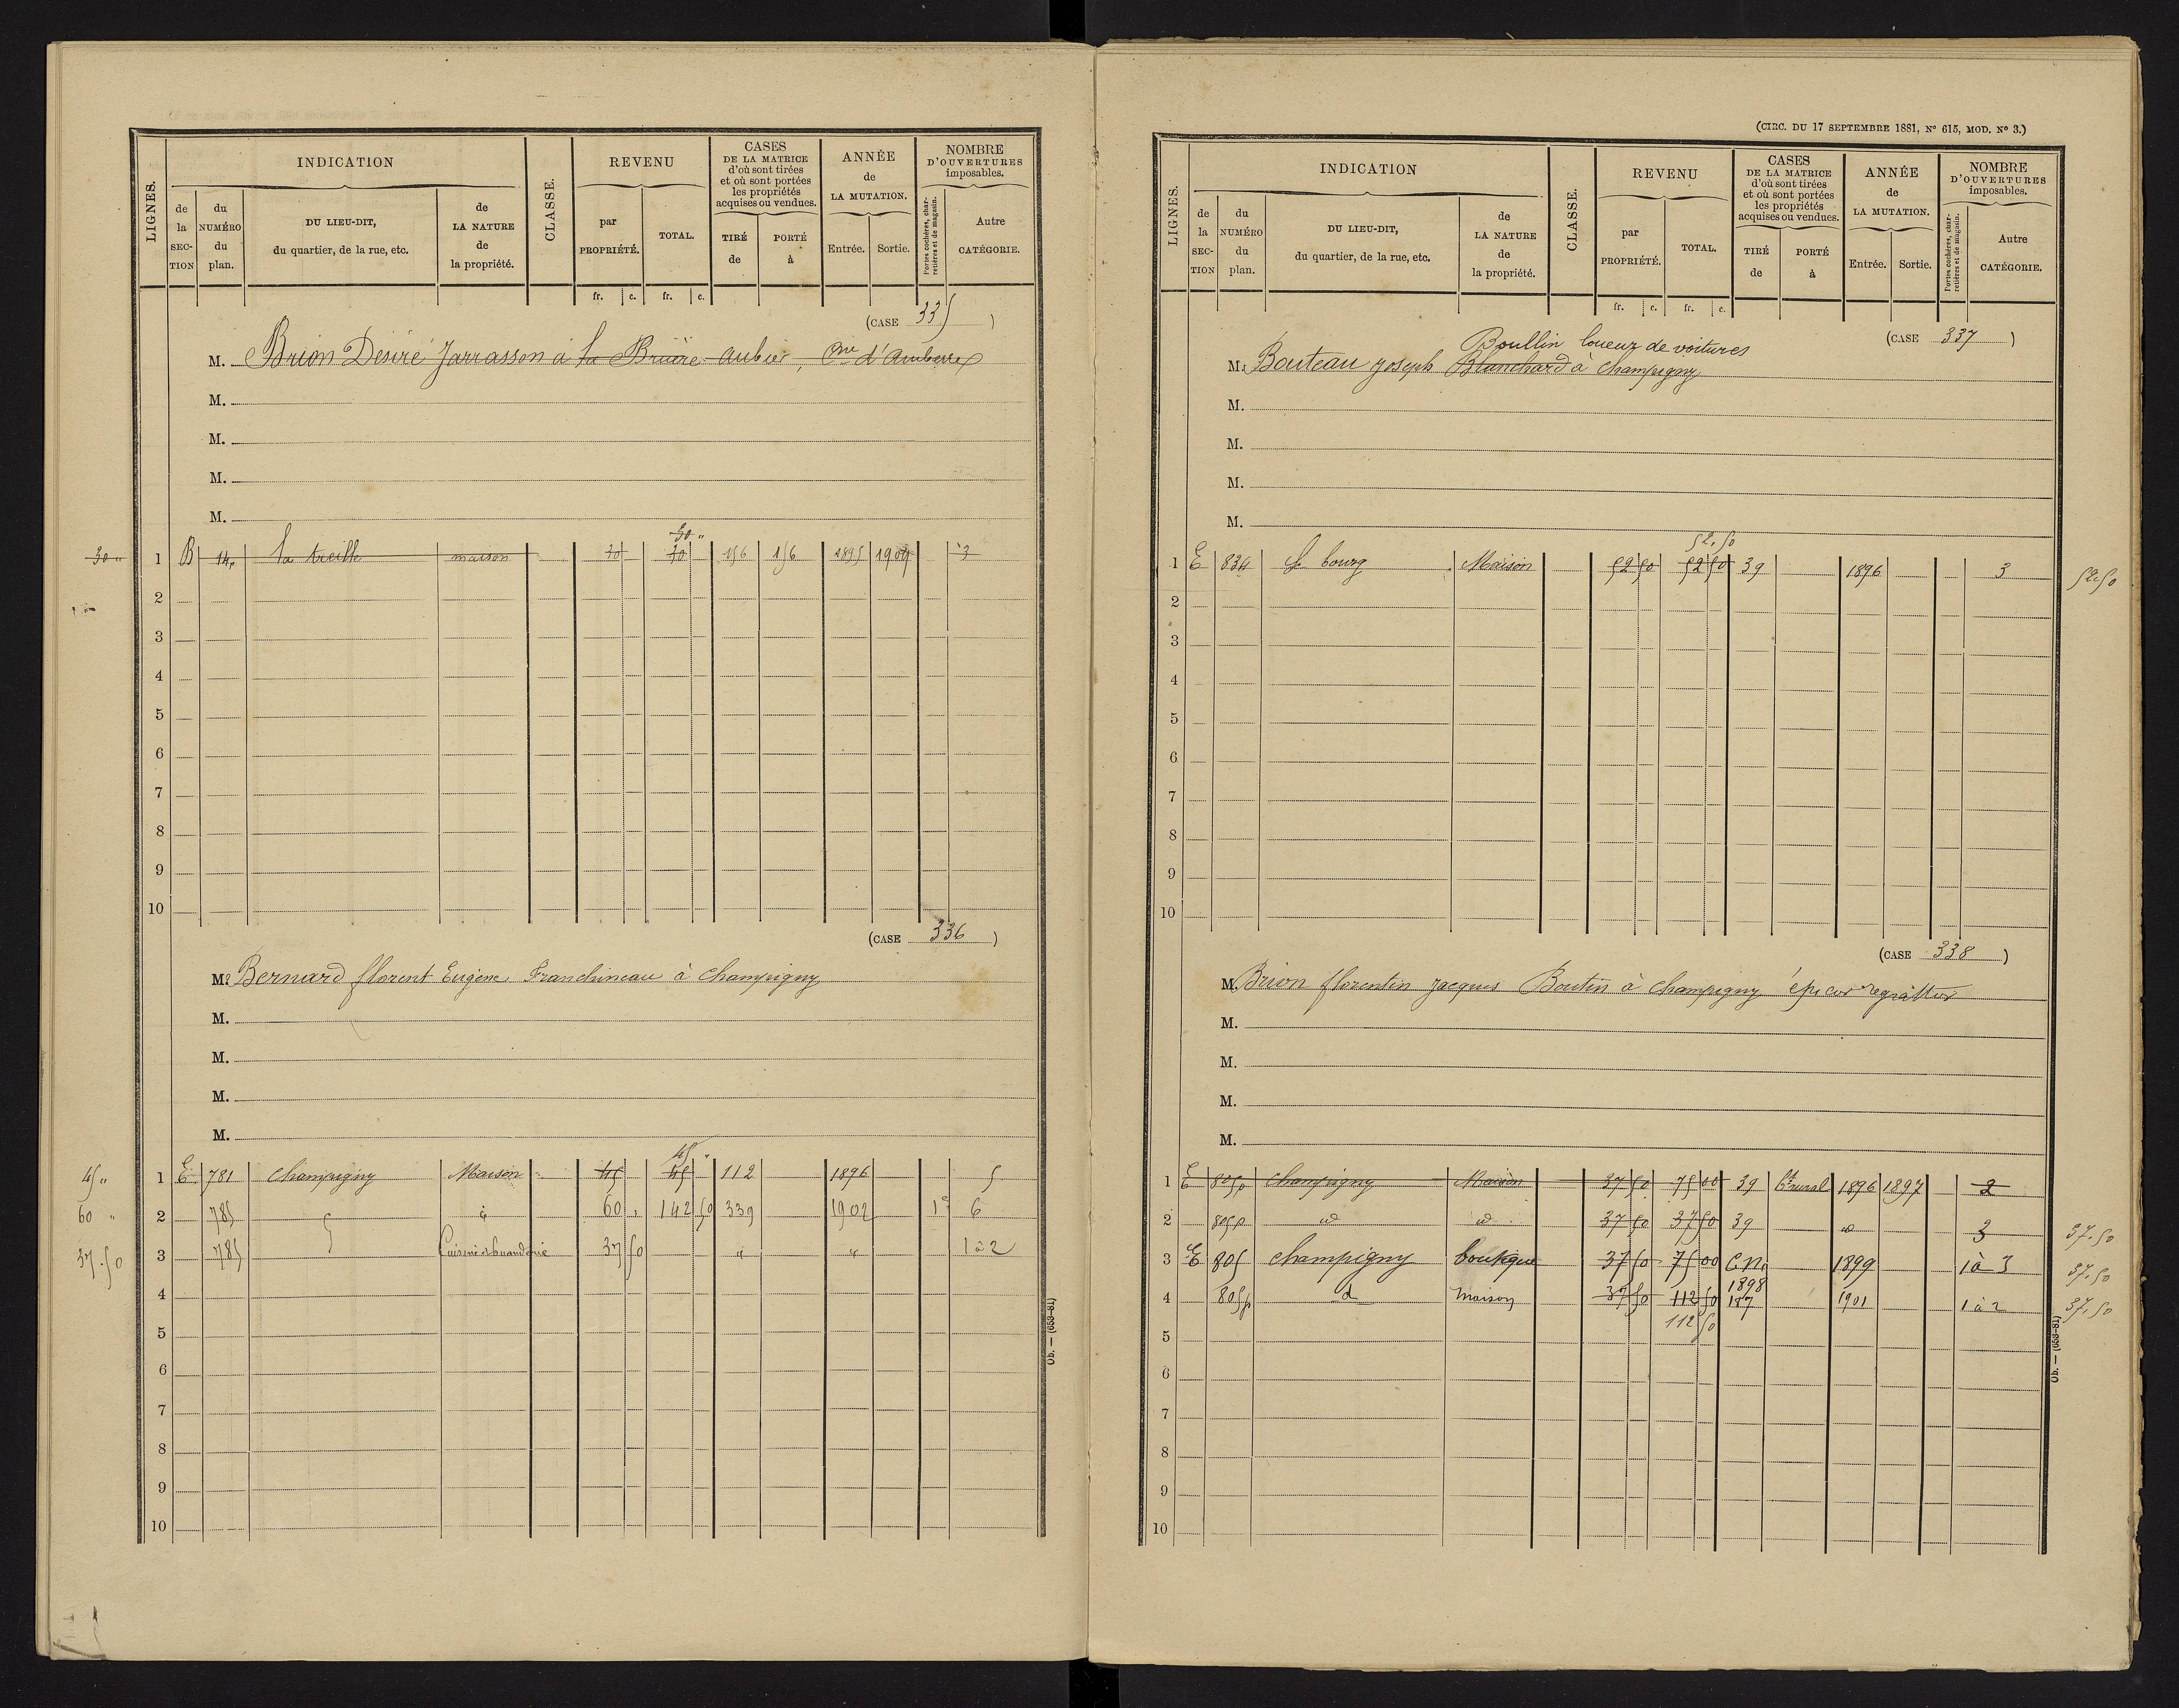 LIGNES.
INDICATION
CLASSE.
REVENU
CASES
DE LA MATRICE
d'où sont tirées
et où sont portées
les propriétés
acquises ou vendues.
ANNÉE
de
LA MUTATION.
NOMBRE
D'OUVERTURES
imposables.
de la SEC-TION
du NUMÉRO du plan.
DU LIEU-DIT,
du quartier, de la rue, etc.
de LA NATURE de la propriété.
par PROPRIÉTÉ.
TOTAL.
TIRÉ de
PORTÉ à
Entrée.
Sortie.
Portes cochères, char-
retières et de magasin.
Autre CATÉGORIE.
fr. c. fr. c.
(CASE 335 )
M. Brion Désiré Jarrasson à la Bruère aubier, Cne d'Amberre
M.
M.
M.
M.
30 "
30 " 1 B 14 la treille maison 30 30 156 156 1895 1909 3
2
3
4
5
6
7
8
9
10
(CASE 336 )
M. Bernard florent Eugène Franchineau à Champigny
M.
M.
M.
M.
45 "
45 " 1 E 781 Champigny Maison 45 45 112 1896 5
60 " 2 785 " 60 " 142 50 339 1902 1 6
37.50 3 785 Cuisine et buanderie 37 50 " " 1 à 2
4
5
6
7
8
9
10
Ob. — (653-81)
(CIRC. DU 17 SEPTEMBRE 1881, N° 615, MOD. N° 3.)
LIGNES.
INDICATION
CLASSE.
REVENU
CASES
DE LA MATRICE
d'où sont tirées
et où sont portées
les propriétés
acquises ou vendues.
ANNÉE
de
LA MUTATION.
NOMBRE
D'OUVERTURES
imposables.
de la SEC-TION
du NUMÉRO du plan.
DU LIEU-DIT,
du quartier, de la rue, etc.
de LA NATURE de la propriété.
par PROPRIÉTÉ.
TOTAL.
TIRÉ de
PORTÉ à
Entrée.
Sortie.
Portes cochères, char-
retières et de magasin.
Autre CATÉGORIE.
fr. c. fr. c.
(CASE 337 )
Boullin loueur de voitures
M. Bouteau joseph Blanchard à Champigny
M.
M.
M.
M.
52.50
1 E 834 le bourg Maison 52 50 52 50 39 1896 3 52.50
2
3
4
5
6
7
8
9
10
(CASE 338 )
M. Brion florentin jacques Boutin à Champigny épicier regrattier
M.
M.
M.
M.
1 E 805p Champigny Maison 37 50 75 00 39 Ct rural 1896 1897 2
2 805p d d 37 50 37 50 39 d 3 37.50
3 E 805 champigny boutique 37 50 75 00 C.N. 1899 1 à 3 37.50
1898
4 805p d maison 37 50 112 50 187 1901 1 à 2 37.50
112 50
5
6
7
8
9
10
Ob. — (653-81)